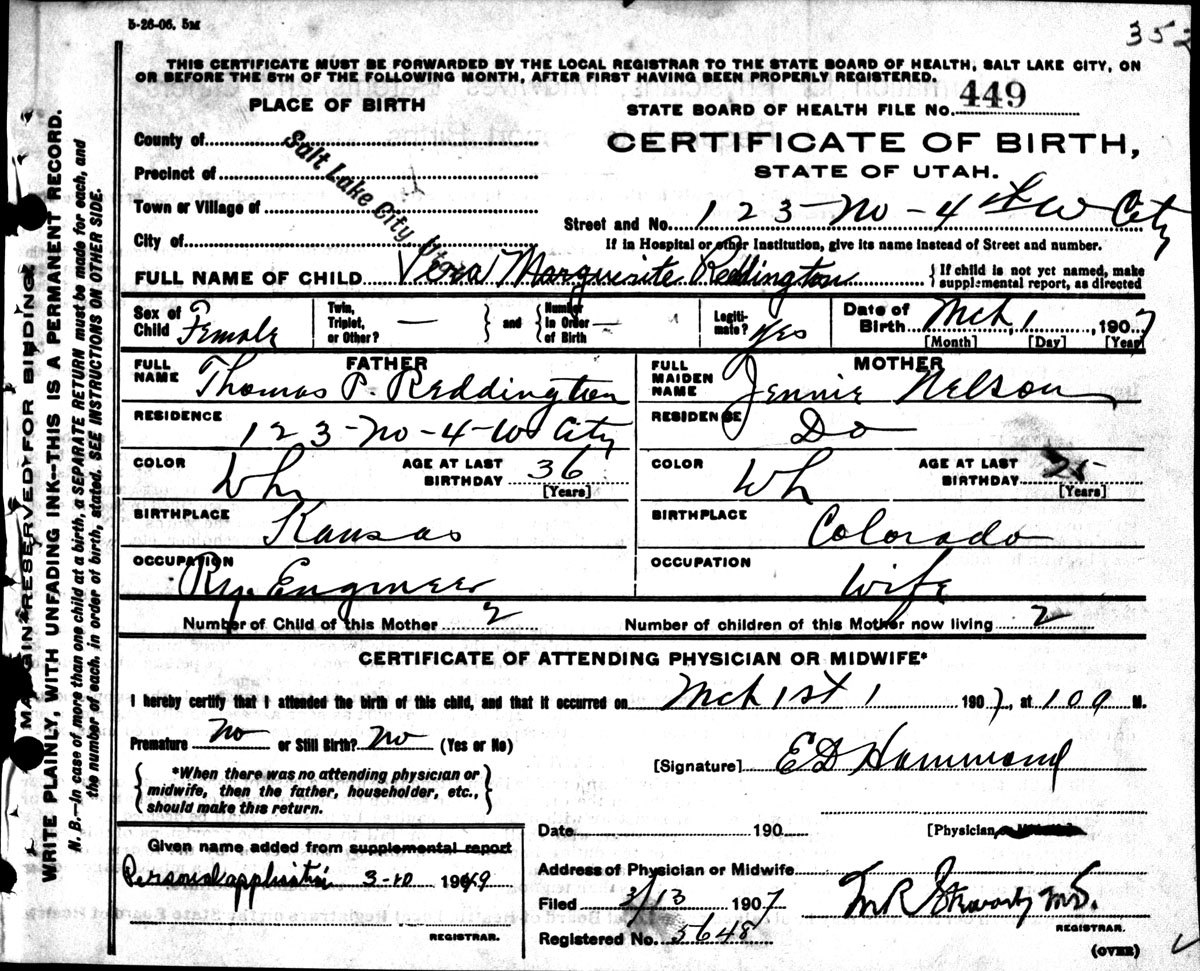 5-26-06. 5M
352
THIS CERTIFICATE MUST BE FORWARDED BY THE LOCAL REGISTRAR TO THE STATE BOARD OF HEALTH, SALT LAKE CITY, ON
OR BEFORE THE 5TH OF THE FOLLOWING MONTH, AFTER FIRST HAVING BEEN PROPERLY REGISTERED.
PLACE OF BIRTH
STATE BOARD OF HEALTH FILE No. 449
CERTIFICATE OF BIRTH,
STATE OF UTAH.
County of
Precinct of
Town or Village of
City of
Salt Lake City Utah
Street and No. 123-No-4th W City
If in Hospital or other Institution, give its name instead of Street and number.
FULL NAME OF CHILD Vera Marguerite Reddington
{ If child is not yet named, make
supplemental report, as directed
Sex of Child Female
Twin, Triplet, or Other? —
} and { Number in Order of Birth —
Legitimate? Yes
Date of Birth Mch, 1, 1907
[Month] [Day] [Year]
FATHER
FULL NAME Thomas P. Reddington
RESIDENCE
123-No-4-W City
COLOR Wh
AGE AT LAST BIRTHDAY 36
[Years]
BIRTHPLACE Kansas
OCCUPATION
Ry. Engineer
MOTHER
FULL MAIDEN NAME Jennie Nelson
RESIDENCE Do
COLOR Wh
AGE AT LAST BIRTHDAY 25
[Years]
BIRTHPLACE Colorado
OCCUPATION
Wife
Number of Child of this Mother 2
Number of children of this Mother now living 2
CERTIFICATE OF ATTENDING PHYSICIAN OR MIDWIFE*
I hereby certify that I attended the birth of this child, and that it occurred on Mch 1st 1 1907, at 1 00 M.
Premature No or Still Birth? No (Yes or No)
{ *When there was no attending physician or
midwife, then the father, householder, etc.,
should make this return. }
[Signature] E D Hammond
Date 190
[Physician
Given name added from supplemental report
Personal application 3-10 1949
REGISTRAR.
Address of Physician or Midwife
Filed 3/13 1907
Registered No. 5648
M.D.
REGISTRAR.
(OVER)
MARGIN RESERVED FOR BINDING
WRITE PLAINLY, WITH UNFADING INK—THIS IS A PERMANENT RECORD.
N. B.—In case of more than one child at a birth, a SEPARATE RETURN must be made for each, and
the number of each, in order of birth, stated. SEE INSTRUCTIONS ON OTHER SIDE.